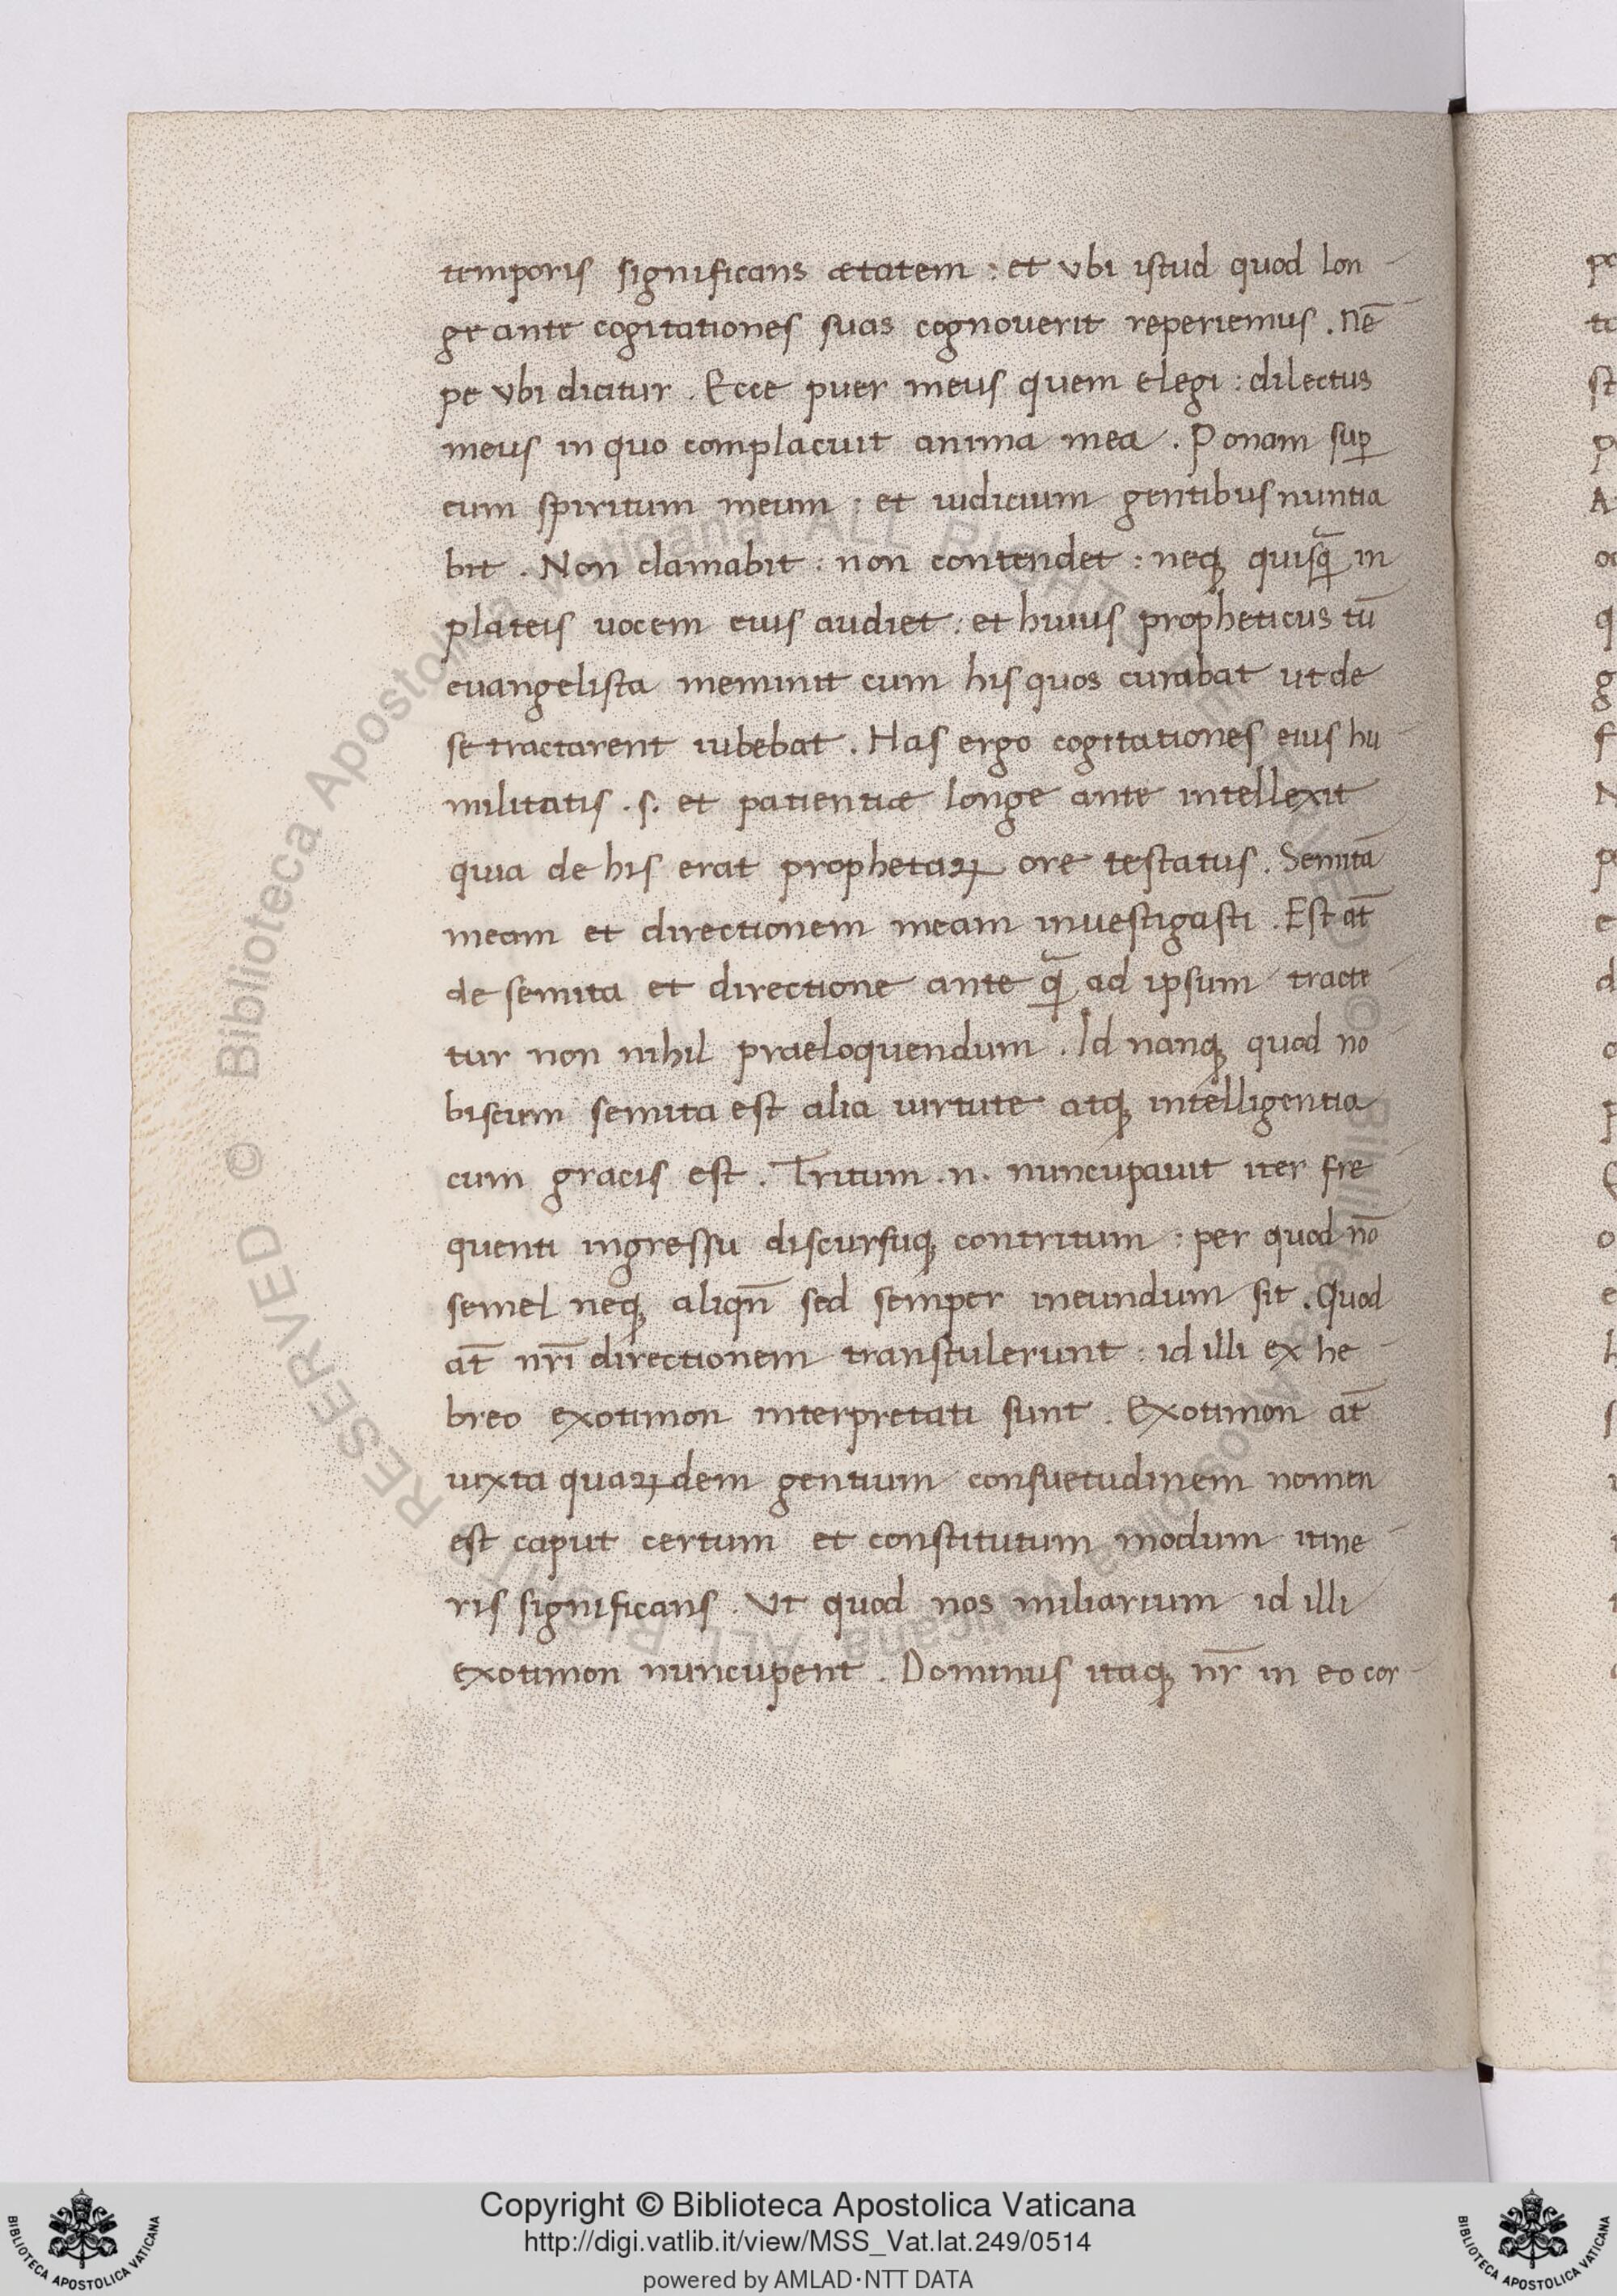 temporis significans ætatem : et vbi istud quod lon
ge ante cogitationes suas cognouerit reperiemus . nē
pe vbi dicitur . Ecce puer meus quem elegi : dilectus
meus in quo complacuit anima mea . Ponam suꝑ
eum spiritum meum : et iudicium gentibus nuntia
bit . Non clamabit : non contendet : neqꝫ quisq̃ in
plateis uocem eius audiet : et huius propheticus tū
euangelista meminit cum his quos curabat ut de
se tractarent iubebat . Has ergo cogitationes eius hu
militatis . s. et patientiæ longe ante intellexit
quia de his erat prophetaꝝ ore testatus . Semitā
meam et directionem meam inuestigasti . Est at̄
de semita et directione ante q̃ ad ipsum tracte
tur non nihil praeloquendum . Id nanqꝫ quod no
biscum semita est alia uirtute atqꝫ intelligentia
cum gracis est . Tritum . n . nuncupauit iter fre
quenti ingressu discursuqꝫ contritum : per quod nō
semel neqꝫ aliqn̄ sed semper ineundum sit . Quod
at̄ nr̄i directionem transtulerunt : id illi ex he
breo exotimon interpretati sunt . Exotimon at̄
iuxta quaꝝdem gentium consuetudinem nomen
est caput certum et constitutum modum itine
ris significans . Vt quod nos miliarium id illi
exotimon nuncupent . Dominus itaqꝫ nr̄ in eo cor
Copyright © Biblioteca Apostolica Vaticana
http://digi.vatlib.it/view/MSS_Vat.lat.249/0514
powered by AMLAD·NTT DATA
BIBLIOTECA APOSTOLICA VATICANA
BIBLIOTECA APOSTOLICA VATICANA
© Biblioteca Apostolica Vaticana ALL RIGHTS RESERVED © Biblioteca Apostolica Vaticana ALL RIGHTS RESERVED